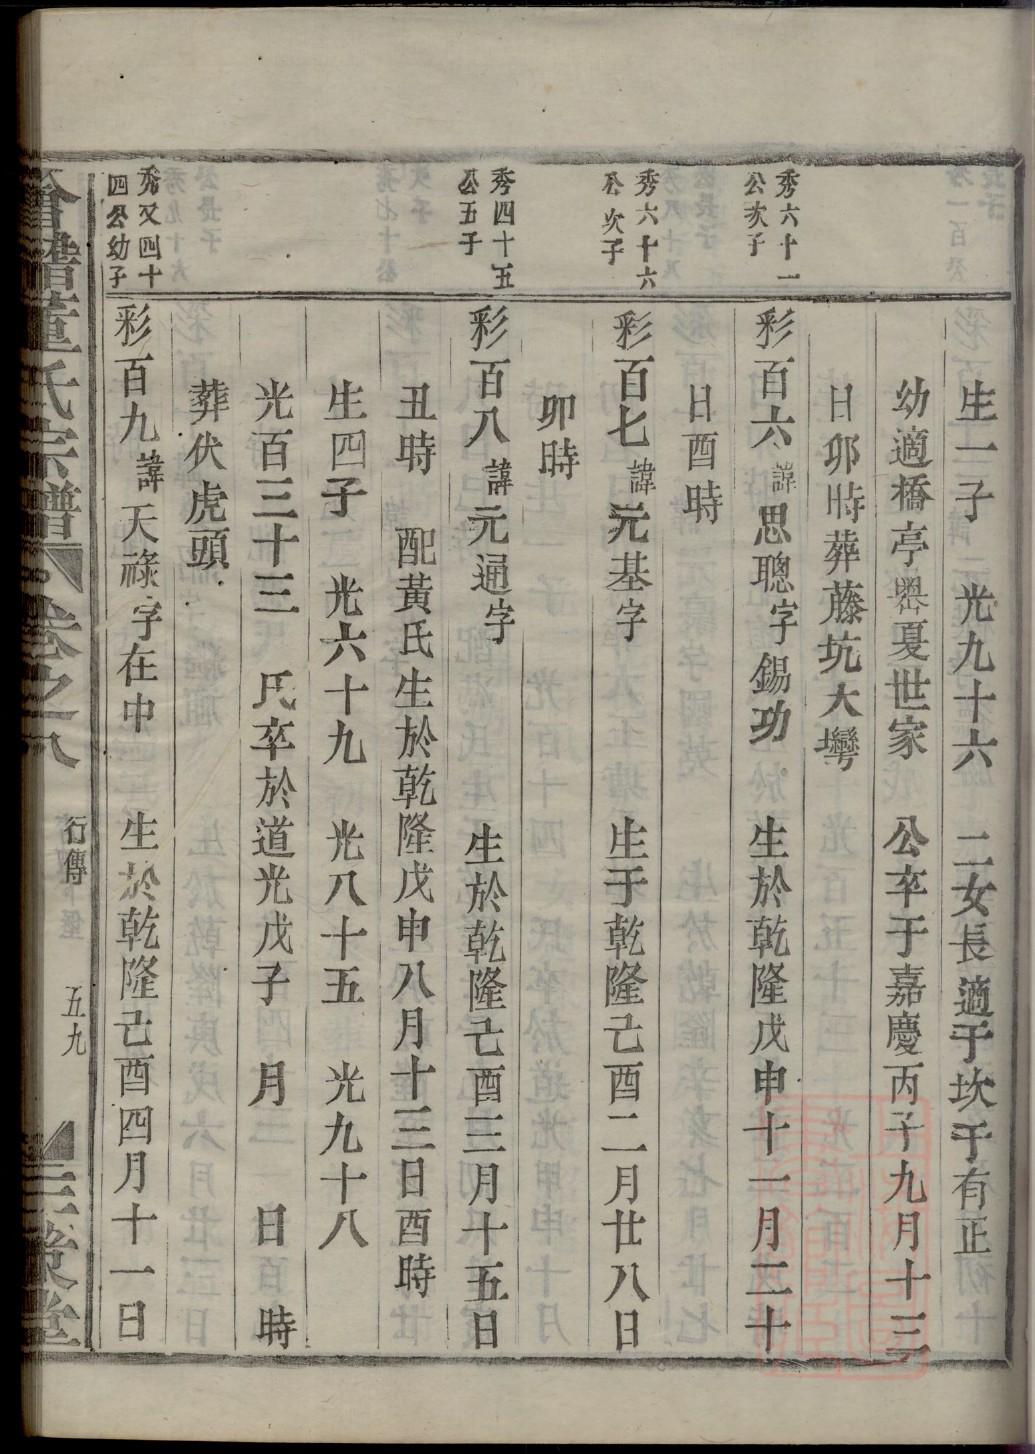 生一子　光九十六　二女長適于坎于有正
幼適橋亭噐夏世家　公卒于嘉慶丙子九月十三
日卯時葬藤坑大灣
秀六十一
公次子
彩百六諱思聰字錫功　生於乾隆戊申十一月二十
日酉時
秀六十六
公次子
彩百七諱元基字　生于乾隆己酉二月廿八日
卯時
秀四十五
公五子
彩百八諱元通字　生於乾隆己酉三月十五日
丑時　配黃氏生於乾隆戊申八月十三日酉時
生四子　光六十九　光八十五　光九十八
光百三十三　氏卒於道光戊子　月　日　時
葬伏虎頭
秀又四十
四公幼子
彩百九諱天祿字在中　生於乾隆己酉四月十一日
董氏宗譜　卷之八　行傳　五九　三策堂